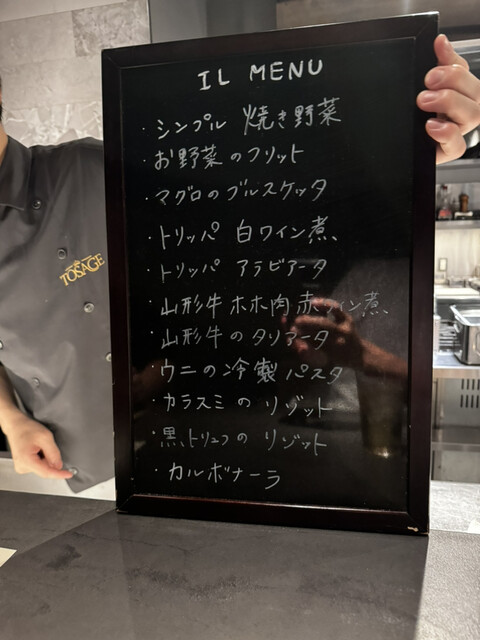 IL MENU
・シンプル 焼き野菜
・お野菜のフリット
・マグロのブルスケッタ
・トリッパ 白ワイン煮、
・トリッパ アラビアータ
・山形牛ホホ肉赤ワイン煮、
・山形牛のタリアータ
・ウニの冷製パスタ
・カラスミのリゾット
・黒トリュフのリゾット
・カルボナーラ
TOSAGE